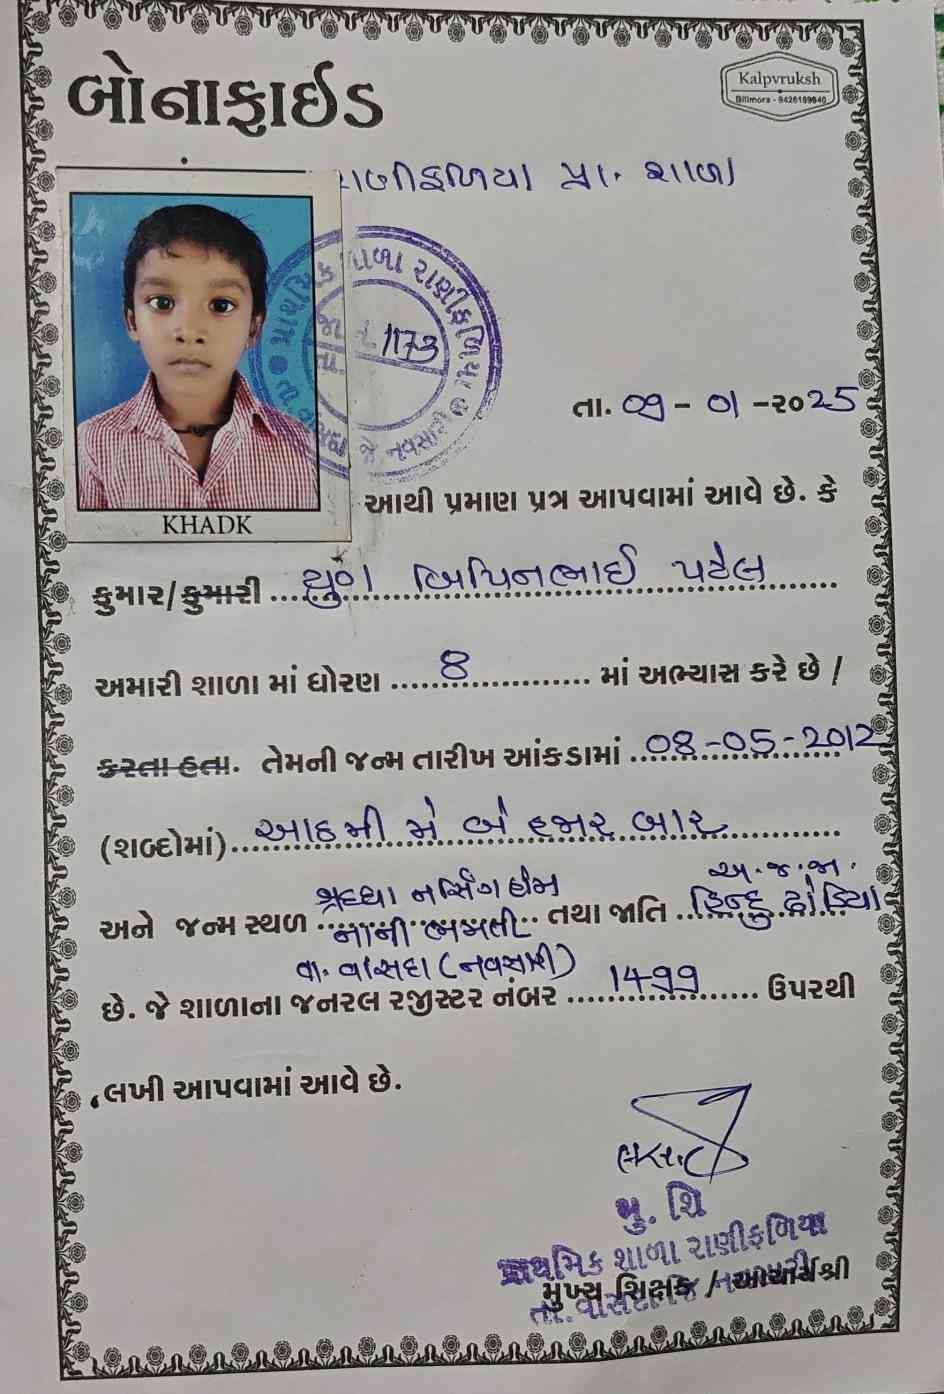 બોનાફાઈડ
Kalpvruksh
Bilimora - 9426189840
રાણીફળિયા પ્રા. શાળા
શાળા રાણીફળિયા
1173
જિ. નવસારી
તા. 09 - 01 - ૨૦25
આથી પ્રમાણ પત્ર આપવામાં આવે છે. કે
KHADK
કુમાર/કુમારી ... બિપિનભાઈ પટેલ
અમારી શાળા માં ધોરણ ... 8 ... માં અભ્યાસ કરે છે /
કરતા હતા. તેમની જન્મ તારીખ આંકડામાં ... 08-05-2012
(શબ્દોમાં) ... આઠમી મે બે હજાર બાર ...
અ.જ.જા.
શ્રધ્ધા નર્સિંગ હોમ
અને જન્મ સ્થળ ... નાની ભમતી ... તથા જાતિ ... હિન્દુ ઢોડિયા
તા. વાંસદા (નવસારી)
છે. જે શાળાના જનરલ રજીસ્ટર નંબર ... 1499 ... ઉપરથી
લખી આપવામાં આવે છે.
મુ. શિ
પ્રાથમિક શાળા રાણીફળિયા
મુખ્ય શિક્ષક / આચાર્યશ્રી
તા. વાંસદા જિ નવસારી